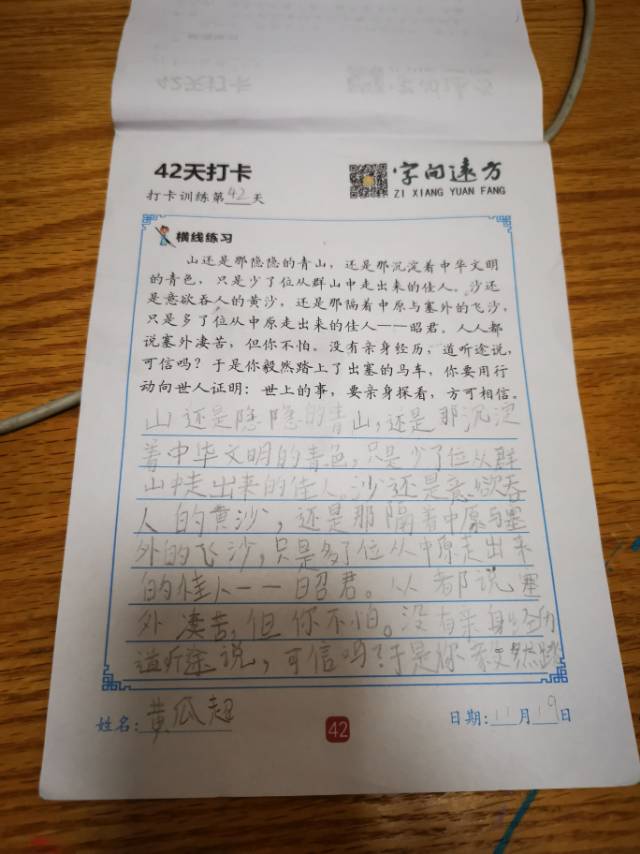 42天打卡
字向远方
ZI XIANG YUAN FANG
打卡训练第42天
横线练习
山还是那隐隐的青山，还是那沉淀着中华文明
的青色，只是少了位从群山中走出来的佳人。沙还
是意欲吞人的黄沙，还是那隔着中原与塞外的飞沙，
只是多了位从中原走出来的佳人——昭君。人人都
说塞外凄苦，但你不怕。没有亲身经历，道听途说，
可信吗？于是你毅然踏上了出塞的马车，你要用行
动向世人证明：世上的事，要亲身探看，方可相信。
山还是隐隐的青山，还是那沉淀
着中华文明的青色，只是少了位从群
山中走出来的佳人。沙还是意欲吞
人的黄沙，还是那隔着中原与塞
外的飞沙，只是多了位从中原走出来
的佳人——昭君。从都说塞
外凄苦，但你不怕。没有亲身经历
道听途说，可信吗？于是你毅然踏
姓名：黄瓜超
42
日期：11月19日